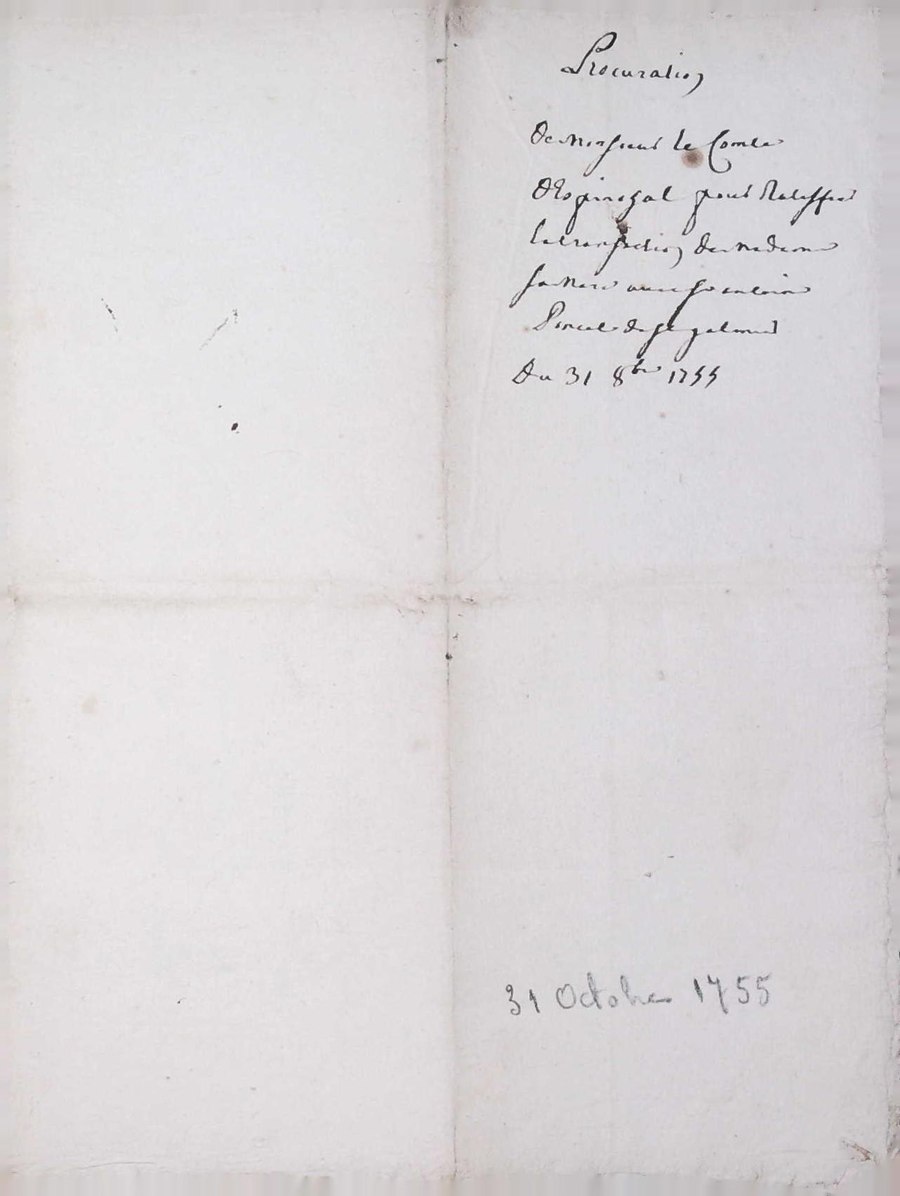 Procuration
de monsieur le Comte
d'Espinchal pour Ratiffier
la transaction de madame
sa mere avec
Du 31 8bre 1755
31 Octobre 1755